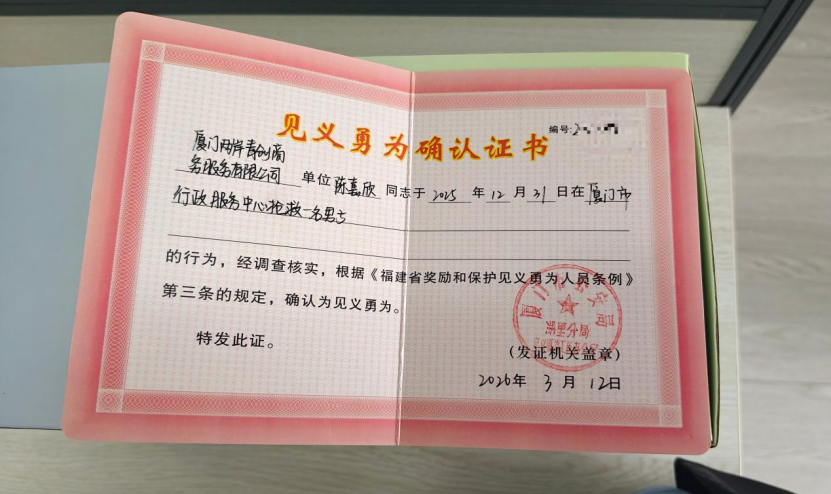 见义勇为确认证书
编号:2
厦门两岸青创商
务服务有限公司 单位 陈嘉欣 同志于 2025 年 12 月 31 日在 厦门市
行政服务中心抢救一名男士
的行为，经调查核实，根据《福建省奖励和保护见义勇为人员条例》
第三条的规定，确认为见义勇为。
特发此证。
(发证机关盖章)
2026年 3 月 12日